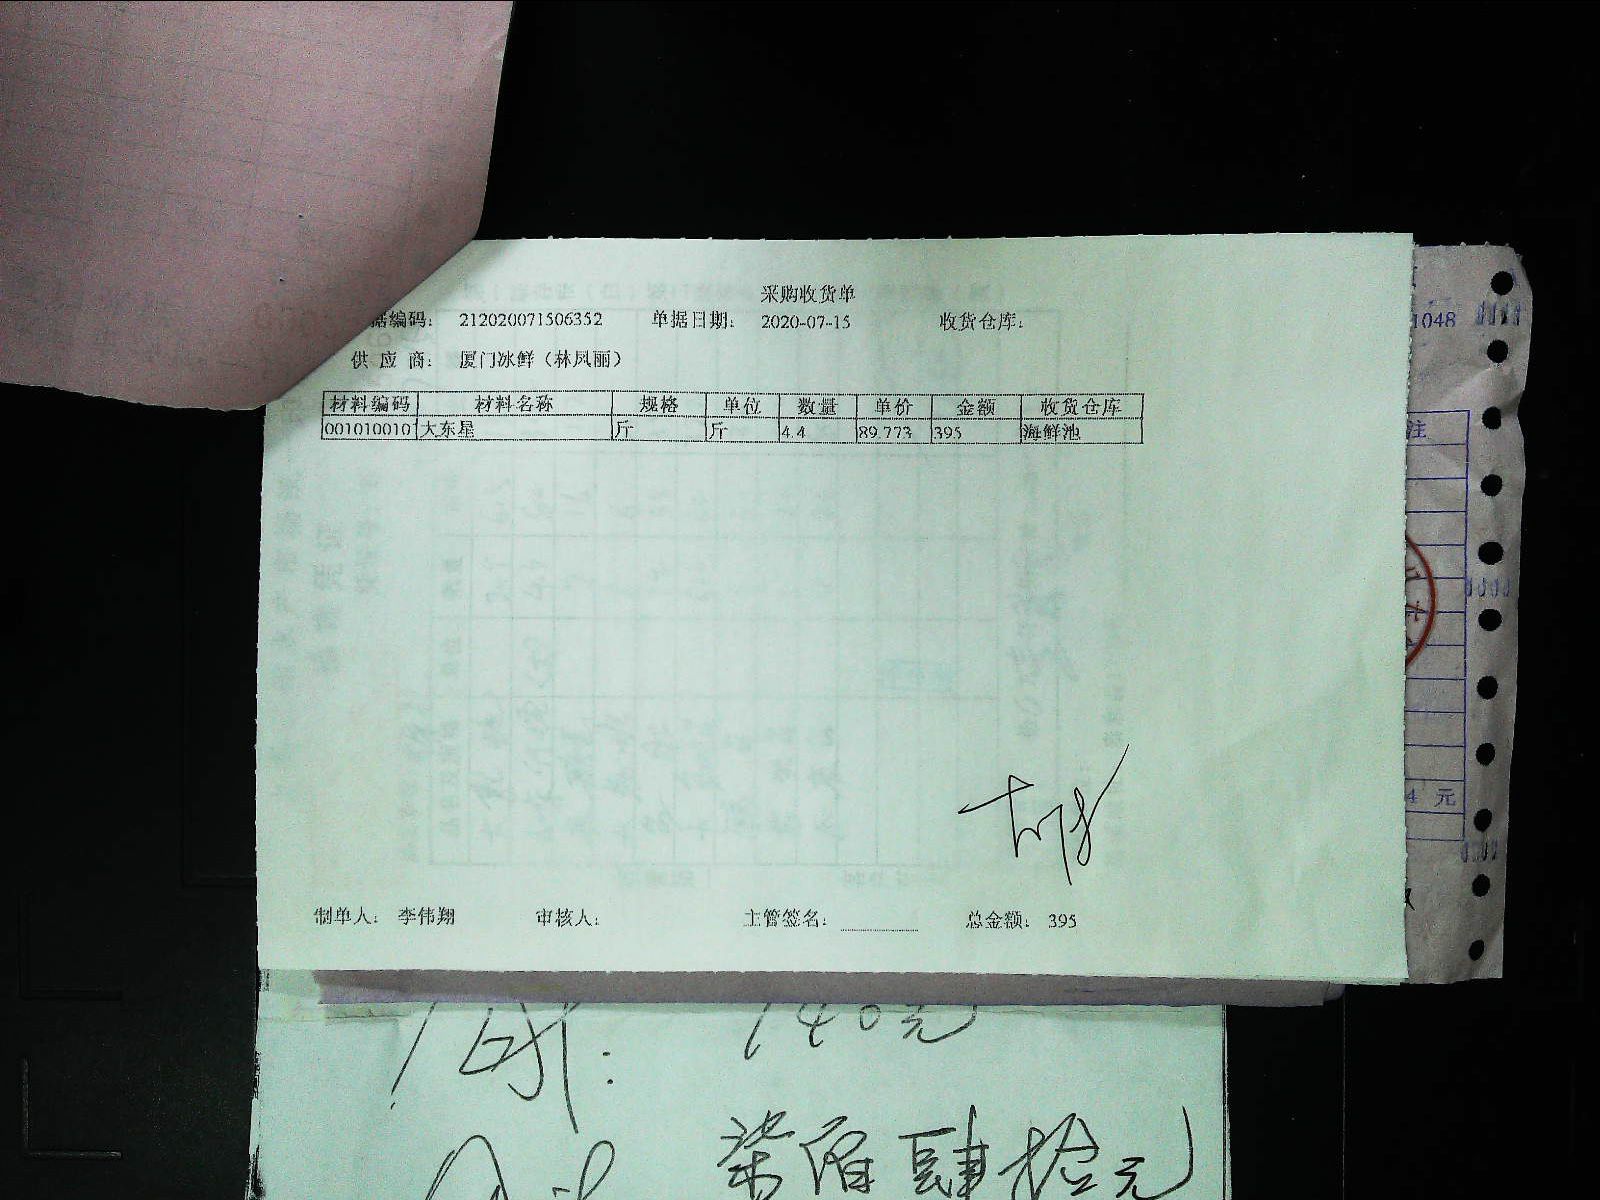 采购收货单
据编码： 212020071506352 单据日期： 2020-07-15 收货仓库：
供 应 商： 厦门冰鲜（林凤丽）
材料编码 材料名称 规格 单位 数量 单价 金额 收货仓库
001010010 大东星 斤 斤 4.4 89.773 395 海鲜池
制单人： 李伟翔 审核人： 主管签名： 总金额： 395
1048
注
4 元
740元
柒佰肆拾元